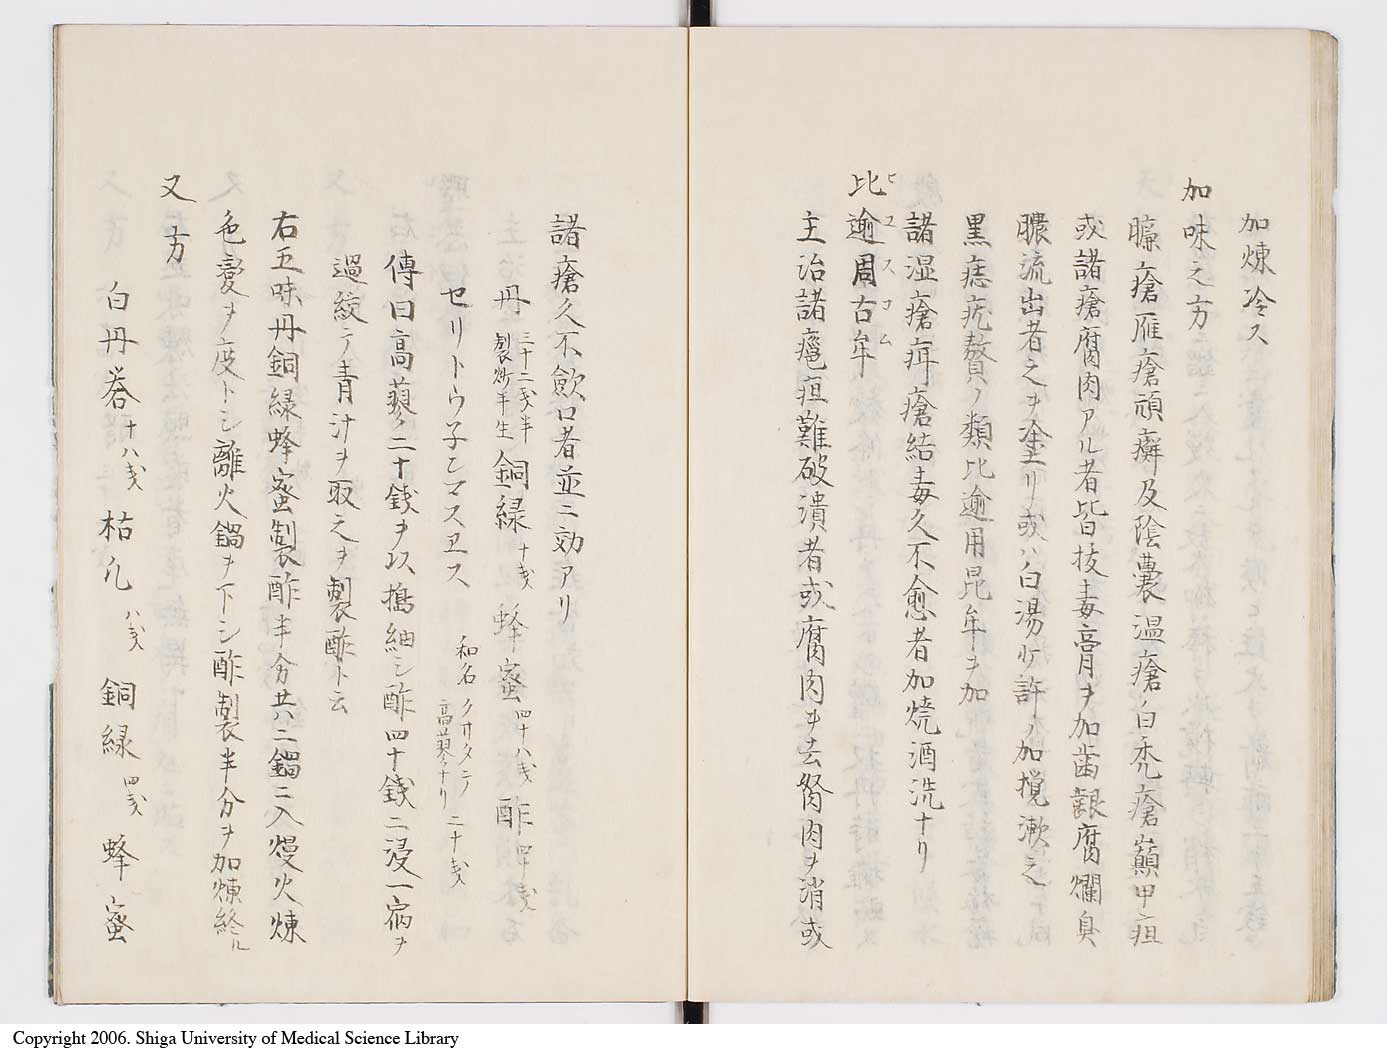 加煉冷ス
加味之方
臁瘡雁瘡頑癬及陰囊温瘡白禿瘡巓甲疽
或諸瘡腐肉アル者皆抜毒膏ヲ加歯齦腐爛臭
膿流出者之ヲ塗リ或ハ白湯少許ノ加攪漱之
黒痣疣贅ノ類比逾用昆牟ヲ加
諸湿瘡疥瘡結毒久不愈者加焼酒洗ナリ
比逾周古牟
ヒユスコム
主治諸瘡疽難破潰者或腐肉ヲ去努肉ヲ消或
諸瘡久不斂口者並ニ効アリ
丹 三十二戔半 製炒半生 銅緑 十戔 蜂蜜 四十八戔 酢 四十戔
セリトウ子ンマスヱス 和名 クサタデ 高蓼ナリ 二十戔
傳曰高蓼二十銭ヲ以搗細シ酢四十銭ニ浸一宿ヲ
過絞テ青汁ヲ取之ヲ製酢ト云
右五味丹銅緑蜂蜜製酢半分共ニ鍋ニ入熳火煉
色変ヲ度トシ離火鍋ヲ下シ酢製半分ヲ加煉終ル
又方 白丹礬 十八戔 枯凡 八戔 銅緑 四戔 蜂蜜
Copyright 2006. Shiga University of Medical Science Library